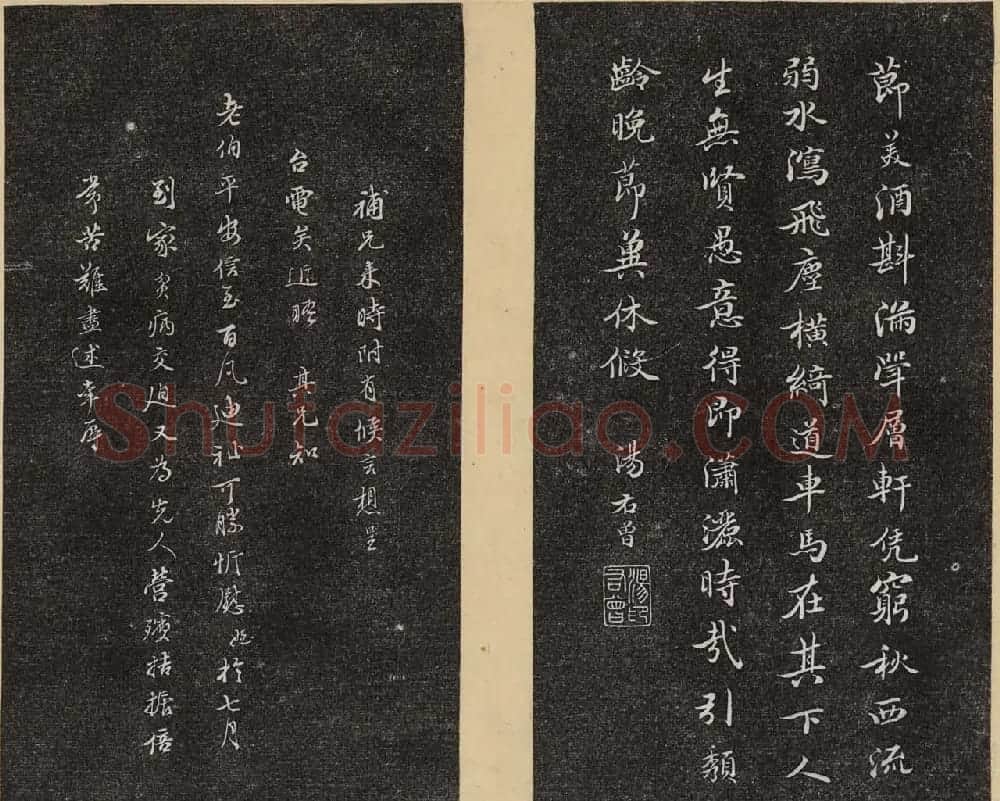 節美酒斟滿犖層軒凭窮秋西流
弱水瀉飛塵橫綺道車馬在其下人
生無賢愚意得即瀟灑時哉引頹
齡晚節冀休假 湯右曾
湯印右曾
補兄來時附有候言想呈
台電矣近晤 其兄知
老伯平安信至百凡迪祉可勝忻慰 於七月
到家貧病交迫又為先人營 拮据倍
常苦難盡述幸
Shufaziliao.COM